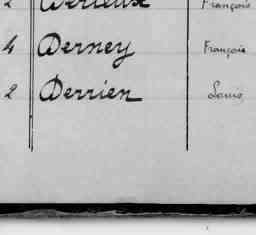 2 Derrieux François
4 Derney François
2 Derrien Louis